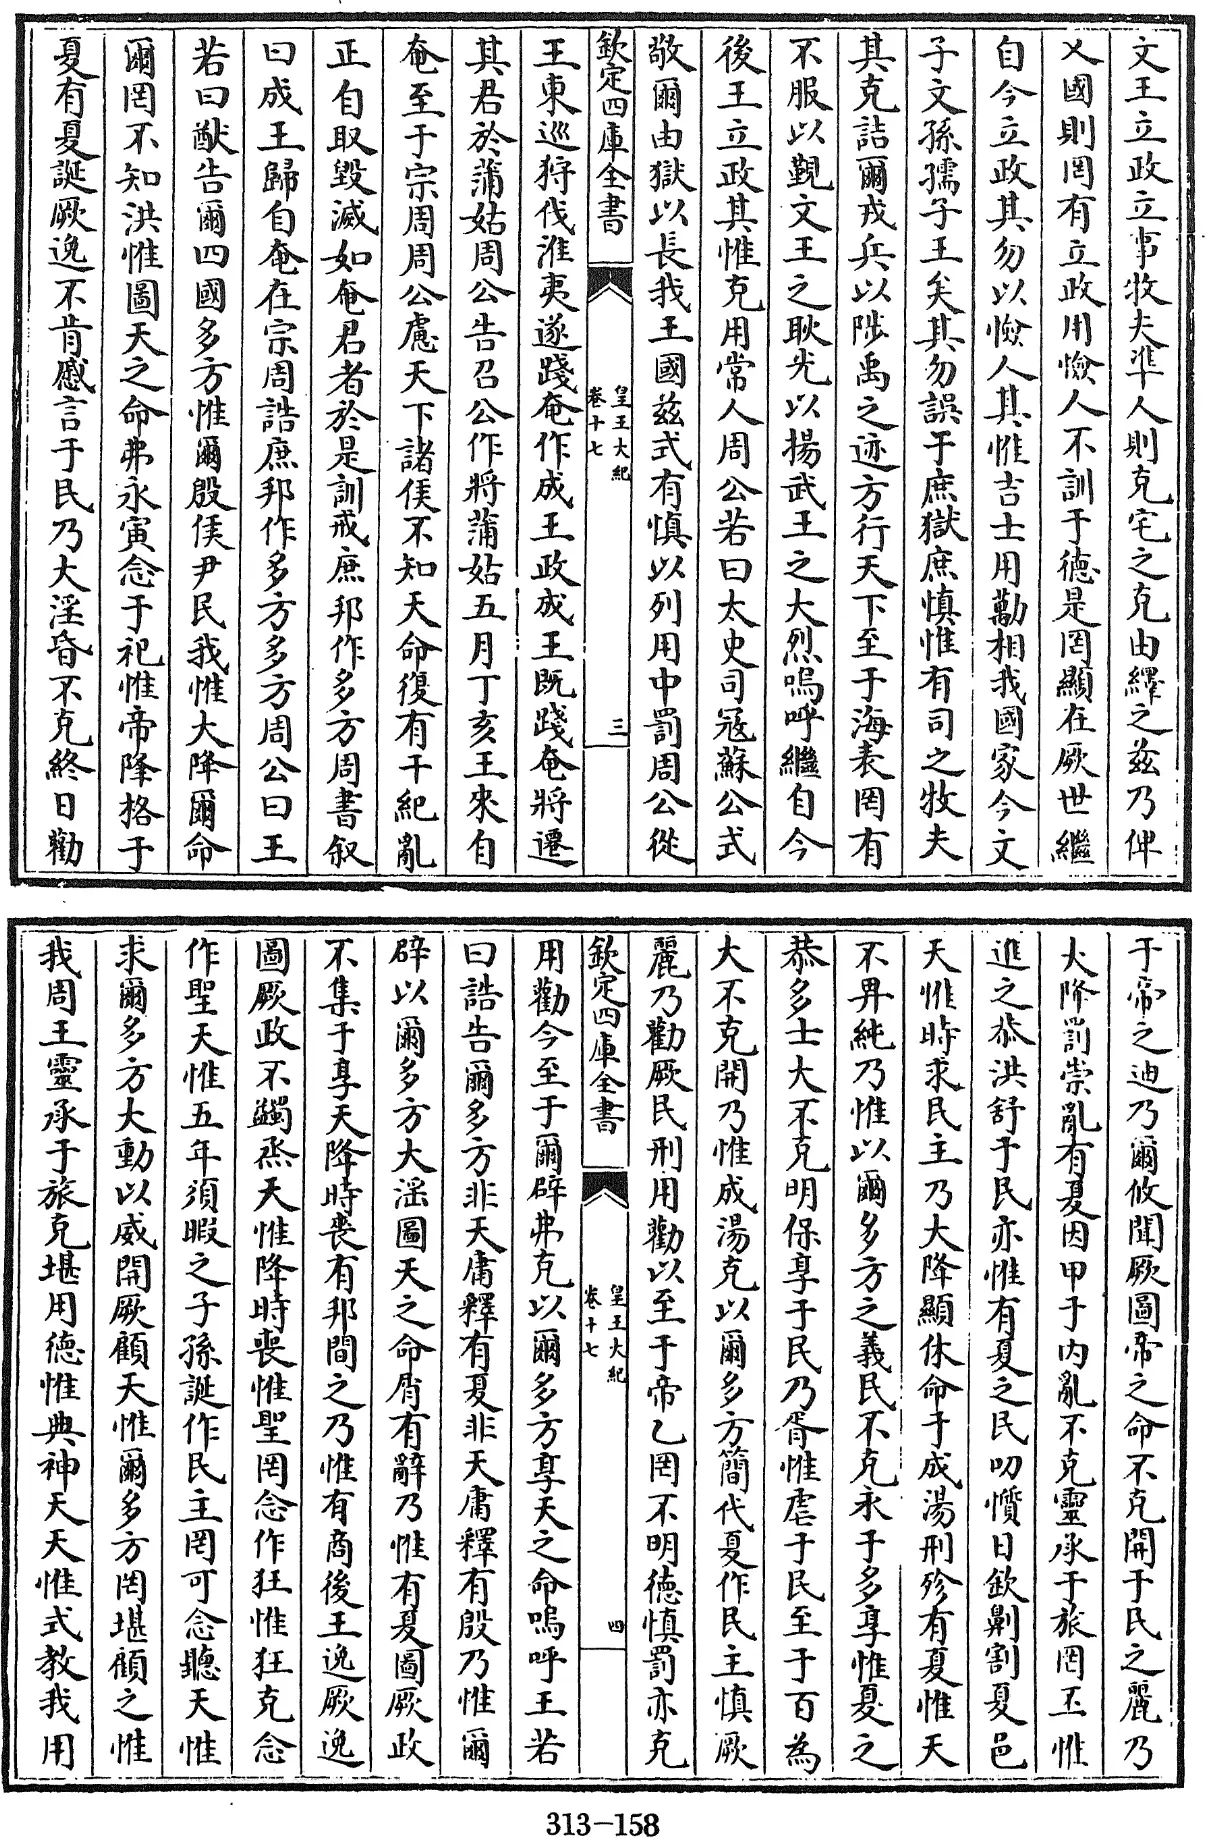 文王立政立事牧夫準人則克宅之克由繹之茲乃俾
乂國則罔有立政用憸人不訓于德是罔顯在厥世繼
自今立政其勿以憸人其惟吉士用勱相我國家今文
子文孫孺子王矣其勿誤于庶獄庶慎惟有司之牧夫
其克詰爾戎兵以陟禹之迹方行天下至于海表罔有
不服以覲文王之耿光以揚武王之大烈嗚呼繼自今
後王立政其惟克用常人周公若曰太史司冦蘇公式
敬爾由獄以長我王國茲式有慎以列用中罰周公從
欽定四庫全書
皇王大紀
卷十七
三
王東巡狩伐淮夷遂踐奄作成王政成王既踐奄將遷
其君於蒲姑周公告召公作將蒲姑五月丁亥王來自
奄至于宗周周公慮天下諸侯不知天命復有干紀亂
正自取毀滅如奄君者於是訓戒庶邦作多方周書叙
曰成王歸自奄在宗周誥庶邦作多方多方周公曰王
若曰猷告爾四國多方惟爾殷侯尹民我惟大降爾命
爾罔不知洪惟圖天之命弗永寅念于祀惟帝降格于
夏有夏誕厥逸不肯慼言于民乃大淫昏不克終日勸
于帝之迪乃爾攸聞厥圖帝之命不克開于民之麗乃
大降罰崇亂有夏因甲于內亂不克靈承于旅罔丕惟
進之恭洪舒于民亦惟有夏之民叨懫日欽劓割夏邑
天惟時求民主乃大降顯休命于成湯刑殄有夏惟天
不畀純乃惟以爾多方之義民不克永于多享惟夏之
恭多士大不克明保享于民乃胥惟虐于民至于百為
大不克開乃惟成湯克以爾多方簡代夏作民主慎厥
麗乃勸厥民刑用勸以至于帝乙罔不明德慎罰亦克
欽定四庫全書
皇王大紀
卷十七
四
用勸今至于爾辟弗克以爾多方享天之命嗚呼王若
曰誥告爾多方非天庸釋有夏非天庸釋有殷乃惟爾
辟以爾多方大淫圖天之命屑有辭乃惟有夏圖厥政
不集于享天降時喪有邦間之乃惟有商後王逸厥逸
圖厥政不蠲烝天惟降時喪惟聖罔念作狂惟狂克念
作聖天惟五年須暇之子孫誕作民主罔可念聽天惟
求爾多方大動以威開厥顧天惟爾多方罔堪顧之惟
我周王靈承于旅克堪用德惟典神天天惟式教我用
313-158